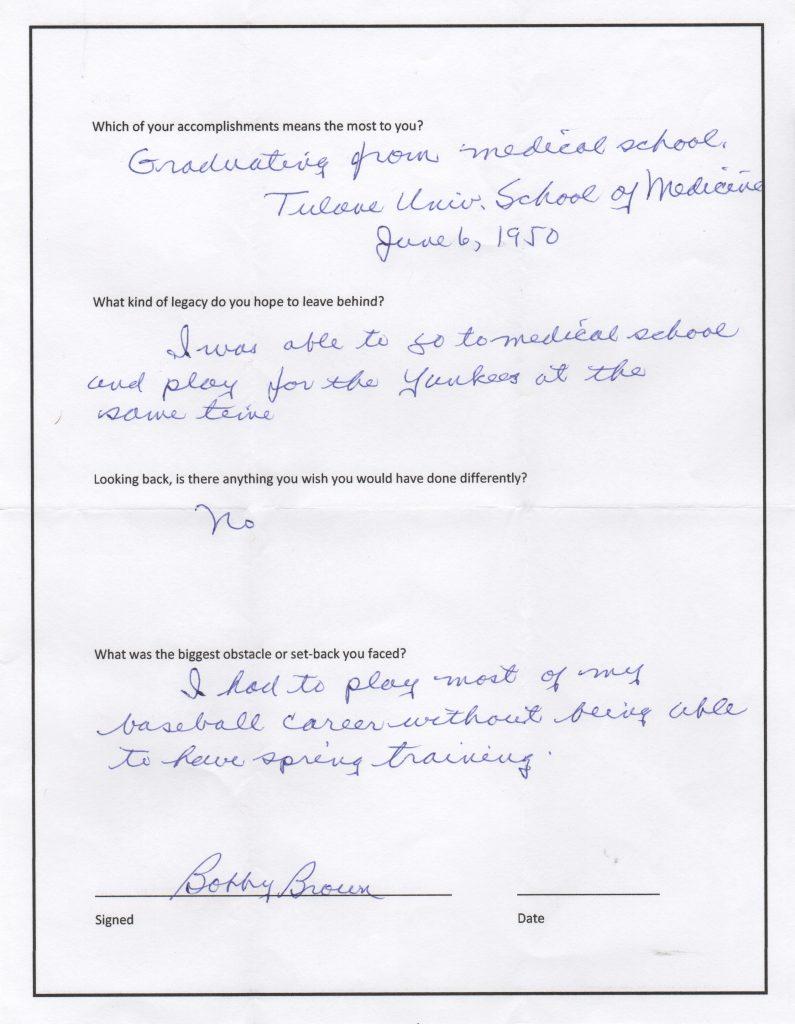 Which of your accomplishments means the most to you?
Graduating from medical school.
Tulane Univ. School of Medicine
June 6, 1950
What kind of legacy do you hope to leave behind?
I was able to go to medical school
and play for the Yankees at the
same time
Looking back, is there anything you wish you would have done differently?
No
What was the biggest obstacle or set-back you faced?
I had to play most of my
baseball career without being able
to have spring training.
Bobby Brown
Signed
Date